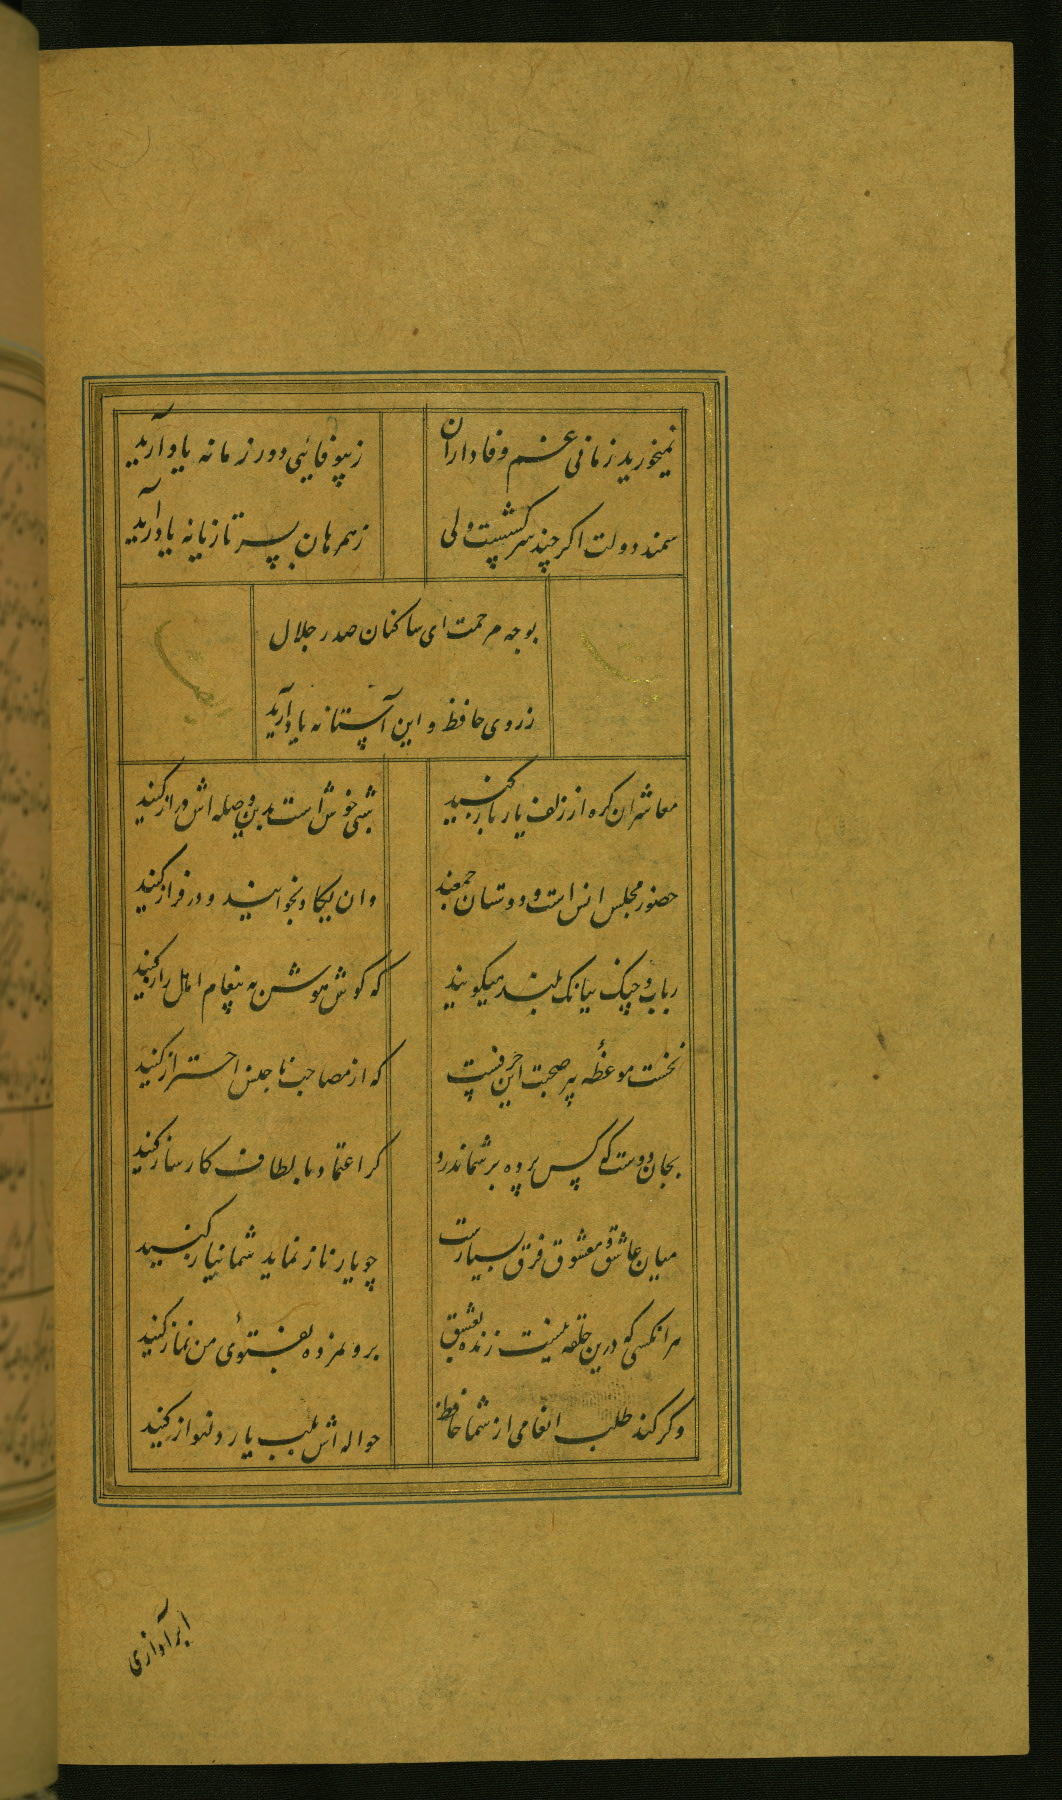 نمیخورید زمانی غم وفاداران
زبیوفائیی دور زمانه یاد آرید
سمند دولت اکر چند سرکشست ولی
زهمرهان بسر تازیانه یاد آرید
بوجه مرحمت ای ساکنان صدر جلال
ز روی حافظ و این آستانه یاد آرید
معاشران کره از زلف یار باز کنید
شبی خوش است بدین وصله اش دراز کنید
حضور مجلس انس است و دوستان جمعند
وان یکاد بخوانید و در فراز کنید
رباب و چنک ببانک بلند میکویند
که کوش هوش به پیغام اهل راز کنید
نخست موعظه پیر صحبت این حرفست
که از مصاحب ناجنس احتراز کنید
بجان دوست که کس پرده بر شما ندرد
کر اعتماد بالطاف کارساز کنید
میان عاشق و معشوق فرق بسیارست
چو یار ناز نماید شما نیاز کنید
هر انکسی که درین حلقه نیست زنده بعشق
برو نمرده بفتوئی من نماز کنید
وکر کند طلب انعامی از شما حافظ
حواله اش بلب یار دلنواز کنید
ابر آذاری